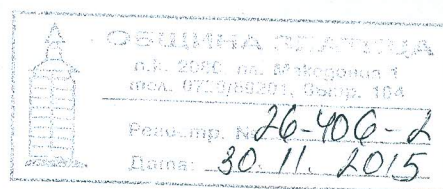 ОБЩИНА ЗЛАТИЦА
п.к. 2080, пл. Македония 1
тел. 0728/66201, вътр. 104
Регистр. № 26-406-2
Дата: 30.11. 2015